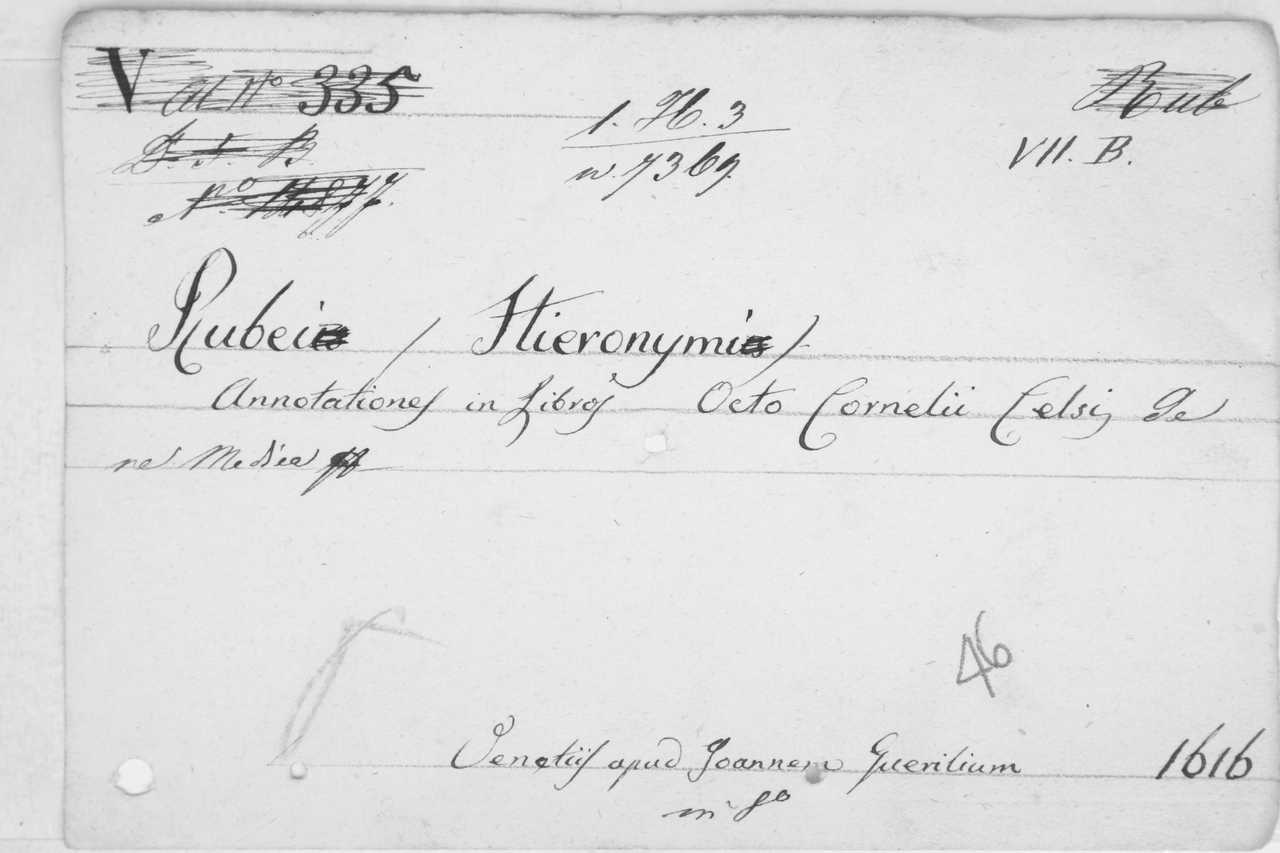 V ad No 335
Rub
1. H. 3
n. 7369.
VII. B.
D. J. B
No 14877.
Rubei / Hieronymi /
Annotationes in Libros Octo Cornelii Celsi, de
re Medica
46
Venetiis apud Joannem Guerilium 1616
in 8o